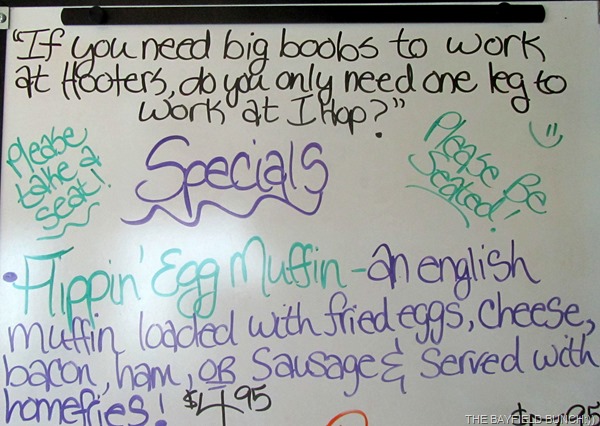 "If you need big boobs to work
at Hooters, do you only need one leg to
work at I Hop?"
Please
take a
seat!
Specials
Please Be
Seated!
• Flippin' Egg Muffin - an english
muffin loaded with fried eggs, cheese,
bacon, ham, OR sausage & served with
homefries! $4.95
THE BAYFIELD BUNCH(c)